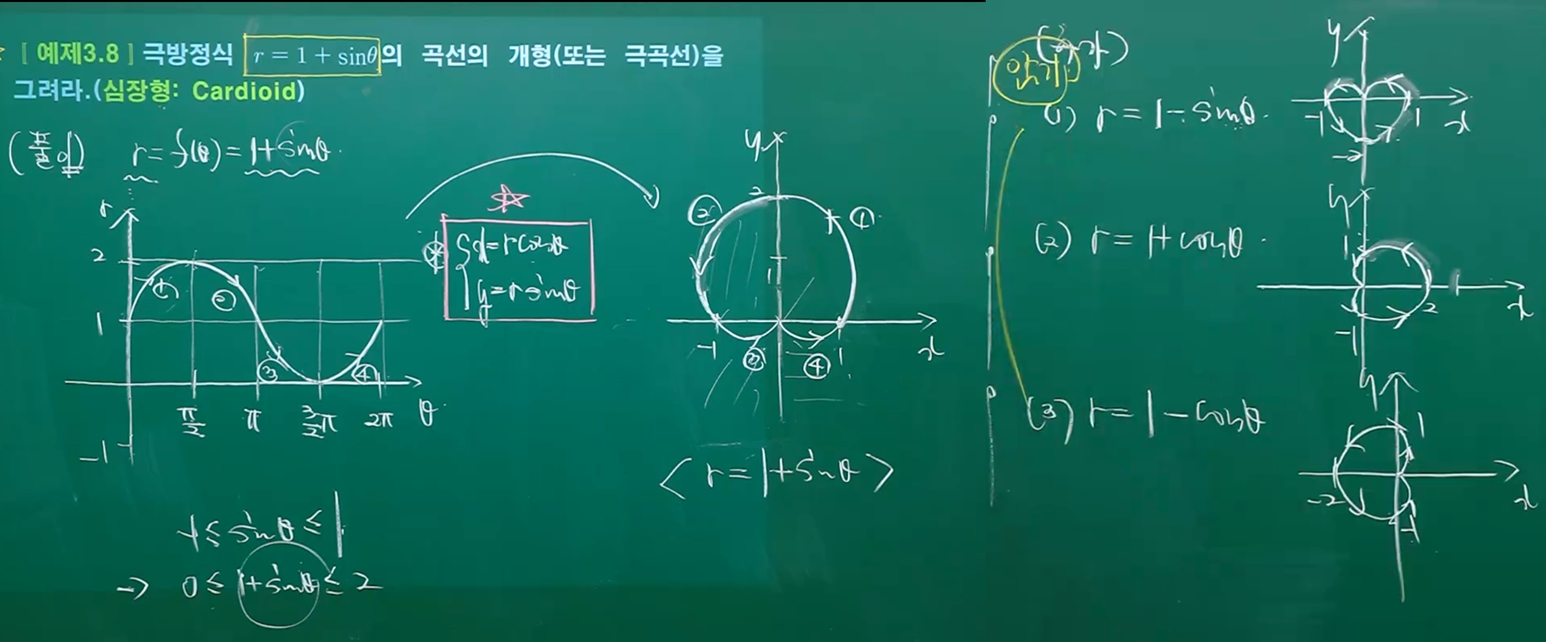 [예제3.8] 극방정식 r = 1 + sinθ의 곡선의 개형(또는 극곡선)을
그려라.(심장형: Cardioid)
(풀이) r = f(θ) = 1+sinθ.
r
2
1
-1
① ② ③ ④
π/2 π 3/2π 2π θ
-1 ≤ sinθ ≤ 1
→ 0 ≤ 1+sinθ ≤ 2
☆
※ { x = r cosθ
y = r sinθ
y
2
② ①
1
-1 ③ ④ 1 x
< r = 1+sinθ >
암기
(1) r = 1 - sinθ.
y
-1 1 x
-2
(2) r = 1+cosθ.
y
1
2 x
-1
(3) r = 1 - cosθ
y
1
-2 x
-1